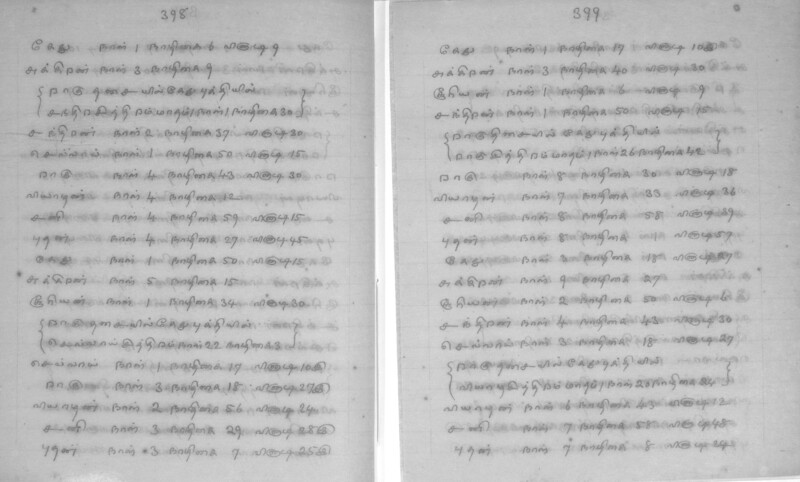 398
கேது நாள் 1 நாழிகை 6 விநாடி 9
சுக்கிரன் நாள் 3 நாழிகை 9
ராகு தசையில் கேது புத்தியில்
சந்திரந்திரம் மாதம் 1 நாள் 1 நாழிகை 30
சந்திரன் நாள் 2 நாழிகை 37 விநாடி 30
செவ்வாய் நாள் 1 நாழிகை 50 விநாடி 15
ராகு நாள் 4 நாழிகை 43 விநாடி 30
வியாழன் நாள் 4 நாழிகை 12
சனி நாள் 4 நாழிகை 59 விநாடி 15
புதன் நாள் 4 நாழிகை 27 விநாடி 45
கேது நாள் 1 நாழிகை 50 விநாடி 15
சுக்கிரன் நாள் 5 நாழிகை 15
சூரியன் நாள் 1 நாழிகை 34 விநாடி 30
ராகு தசையில் கேது புத்தியில்
செவ்வாய் நாள் 22 நாழிகை 3
செவ்வாய் நாள் 1 நாழிகை 17 விநாடி
ராகு நாள் 3 நாழிகை 18 விநாடி
வியாழன் நாள் 2 நாழிகை 56 விநாடி 24
சனி நாள் 3 நாழிகை 29 விநாடி
புதன் நாள் 3 நாழிகை 7 விநாடி
399
கேது நாள் 1 நாழிகை 17 விநாடி
சுக்கிரன் நாள் 3 நாழிகை 40 விநாடி 30
சூரியன் நாள் 1 நாழிகை 6 விநாடி 9
சந்திரன் நாள் 1 நாழிகை 50 விநாடி 15
ராகு தசையில் கேது புத்தியில்
மாதம் 1 நாள் 26 நாழிகை 42
ராகு நாள் 8 நாழிகை 30 விநாடி 18
வியாழன் நாள் 7 நாழிகை 33 விநாடி 36
சனி நாள் 8 நாழிகை 58 விநாடி 39
புதன் நாள் 8 நாழிகை 1 விநாடி 57
கேது நாள் 3 நாழிகை 18 விநாடி 27
சுக்கிரன் நாள் 9 நாழிகை 27
சூரியன் நாள் 2 நாழிகை 50 விநாடி 6
சந்திரன் நாள் 4 நாழிகை 43 விநாடி 30
செவ்வாய் நாள் 3 நாழிகை 18 விநாடி 27
ராகு தசையில் கேது புத்தியில்
மாதம் 1 நாள் 20 நாழிகை 24
வியாழன் நாள் 6 நாழிகை 43 விநாடி 12
சனி நாள் 7 நாழிகை 58 விநாடி 48
புதன் நாள் 7 நாழிகை 8 விநாடி 24